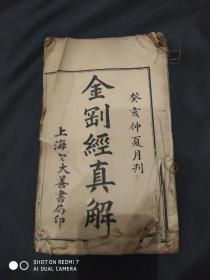 癸亥仲夏月刊
金剛經真解
上海大善書局印
REDMI NOTE 9
AI QUAD CAMERA